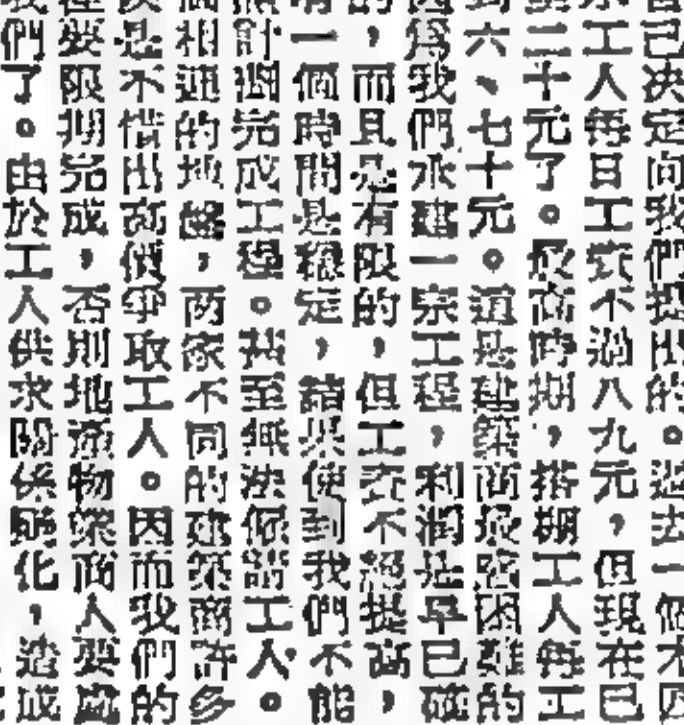 自己決定向我們提出的。過去一個
工人每日工資不過八九元，但現在已
二十元了。最高時期，搭棚工人每工
到六、七十元。這是建築商最困難的
因爲我們承建一宗工程，利潤是早已
的，而且是有限的，但工資不絕提高，
有一個時間是穩定，結果使到我們不能
預計到完成工程。甚至無法僱請工人。
相連的地盤，两家不同的建築商許多
是不惜出高價爭取工人。因而我們的
要限期完成，否則地產物業商人要
我們了。由於工人供求關係變化，造成